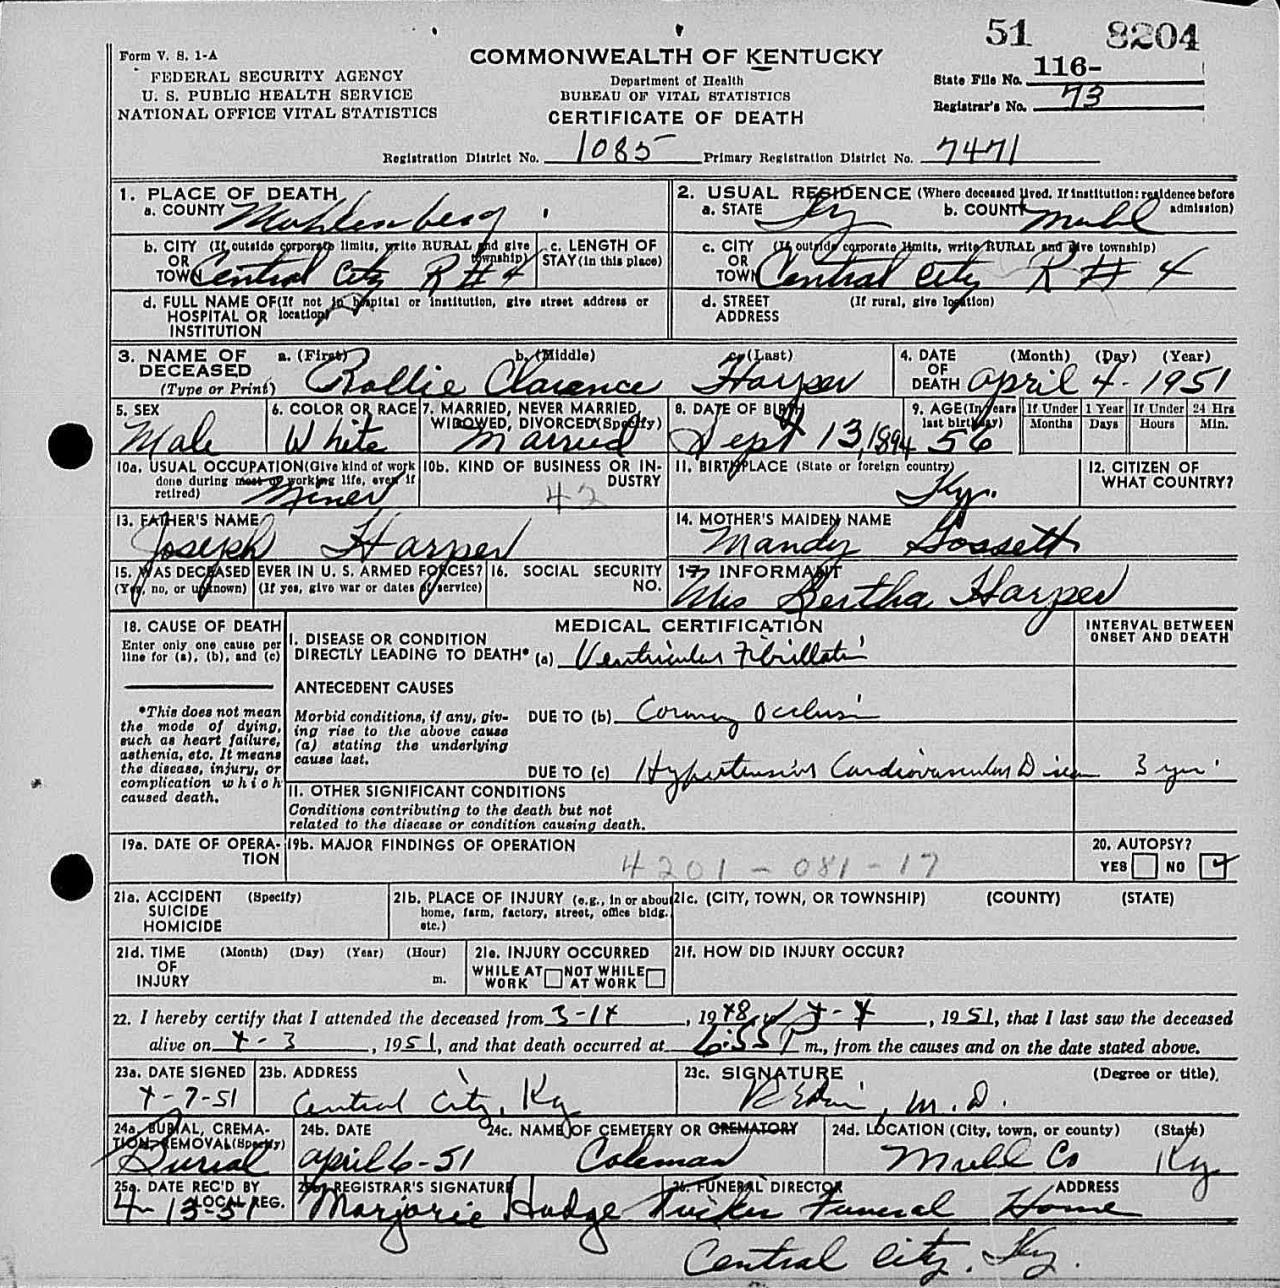 51 8204
Form V. S. 1-A
FEDERAL SECURITY AGENCY
U. S. PUBLIC HEALTH SERVICE
NATIONAL OFFICE VITAL STATISTICS
COMMONWEALTH OF KENTUCKY
Department of Health
BUREAU OF VITAL STATISTICS
CERTIFICATE OF DEATH
State File No. 116-
Registrar's No. 73
Registration District No. 1085 Primary Registration District No. 7471
1. PLACE OF DEATH
a. COUNTY Muhlenberg
2. USUAL RESIDENCE (Where deceased lived. If institution: residence before admission)
a. STATE Ky b. COUNTY Muhl
b. CITY (If outside corporate limits, write RURAL and give township)
OR
TOWN Central City R # 4
c. LENGTH OF STAY (in this place)
c. CITY (If outside corporate limits, write RURAL and give township)
OR
TOWN Central City R # 4
d. FULL NAME OF (If not in hospital or institution, give street address or location)
HOSPITAL OR
INSTITUTION
d. STREET (If rural, give location)
ADDRESS
3. NAME OF DECEASED
(Type or Print)
a. (First) b. (Middle) c. (Last)
Rollie Clarence Harper
4. DATE OF DEATH (Month) (Day) (Year)
April 4-1951
5. SEX
Male
6. COLOR OR RACE
White
7. MARRIED, NEVER MARRIED, WIDOWED, DIVORCED (Specify)
Married
8. DATE OF BIRTH
Sept 13, 1894
9. AGE (In years last birthday)
56
If Under 1 Year
Months Days
If Under 24 Hrs
Hours Min.
10a. USUAL OCCUPATION (Give kind of work done during most of working life, even if retired)
Miner
10b. KIND OF BUSINESS OR INDUSTRY
42
11. BIRTHPLACE (State or foreign country)
Ky.
12. CITIZEN OF WHAT COUNTRY?
13. FATHER'S NAME
Joseph Harper
14. MOTHER'S MAIDEN NAME
Mandy Gossett
15. WAS DECEASED EVER IN U. S. ARMED FORCES?
(Yes, no, or unknown) (If yes, give war or dates of service)
16. SOCIAL SECURITY NO.
17. INFORMANT
Mrs Bertha Harper
18. CAUSE OF DEATH
Enter only one cause per line for (a), (b), and (c)
*This does not mean the mode of dying, such as heart failure, asthenia, etc. It means the disease, injury, or complication which caused death.
MEDICAL CERTIFICATION
INTERVAL BETWEEN ONSET AND DEATH
I. DISEASE OR CONDITION
DIRECTLY LEADING TO DEATH* (a) Ventricular Fibrillation
ANTECEDENT CAUSES
Morbid conditions, if any, giving rise to the above cause (a) stating the underlying cause last.
DUE TO (b) Coronary Occlusion
DUE TO (c) Hypertensive Cardiovascular Disease 3 yrs.
II. OTHER SIGNIFICANT CONDITIONS
Conditions contributing to the death but not related to the disease or condition causing death.
19a. DATE OF OPERATION
19b. MAJOR FINDINGS OF OPERATION
4201-081-17
20. AUTOPSY?
YES NO
21a. ACCIDENT (Specify)
SUICIDE
HOMICIDE
21b. PLACE OF INJURY (e.g., in or about home, farm, factory, street, office bldg. etc.)
21c. (CITY, TOWN, OR TOWNSHIP) (COUNTY) (STATE)
21d. TIME (Month) (Day) (Year) (Hour)
OF
INJURY m.
21e. INJURY OCCURRED
WHILE AT WORK NOT WHILE AT WORK
21f. HOW DID INJURY OCCUR?
22. I hereby certify that I attended the deceased from 3-14, 1948, 4-4, 1951, that I last saw the deceased
alive on 4-3, 1951, and that death occurred at 6:55 P m., from the causes and on the date stated above.
23a. DATE SIGNED
4-7-51
23b. ADDRESS
Central City, Ky
23c. SIGNATURE (Degree or title)
M.D.
24a. BURIAL, CREMATION, REMOVAL (Specify)
Burial
24b. DATE
April 6-51
24c. NAME OF CEMETERY OR CREMATORY
Coleman
24d. LOCATION (City, town, or county) (State)
Muhl Co Ky
25a. DATE REC'D BY LOCAL REG.
4-13-51
25b. REGISTRAR'S SIGNATURE
Marjorie Hudge
26. FUNERAL DIRECTOR ADDRESS
Tucker Funeral Home
Central City, Ky.